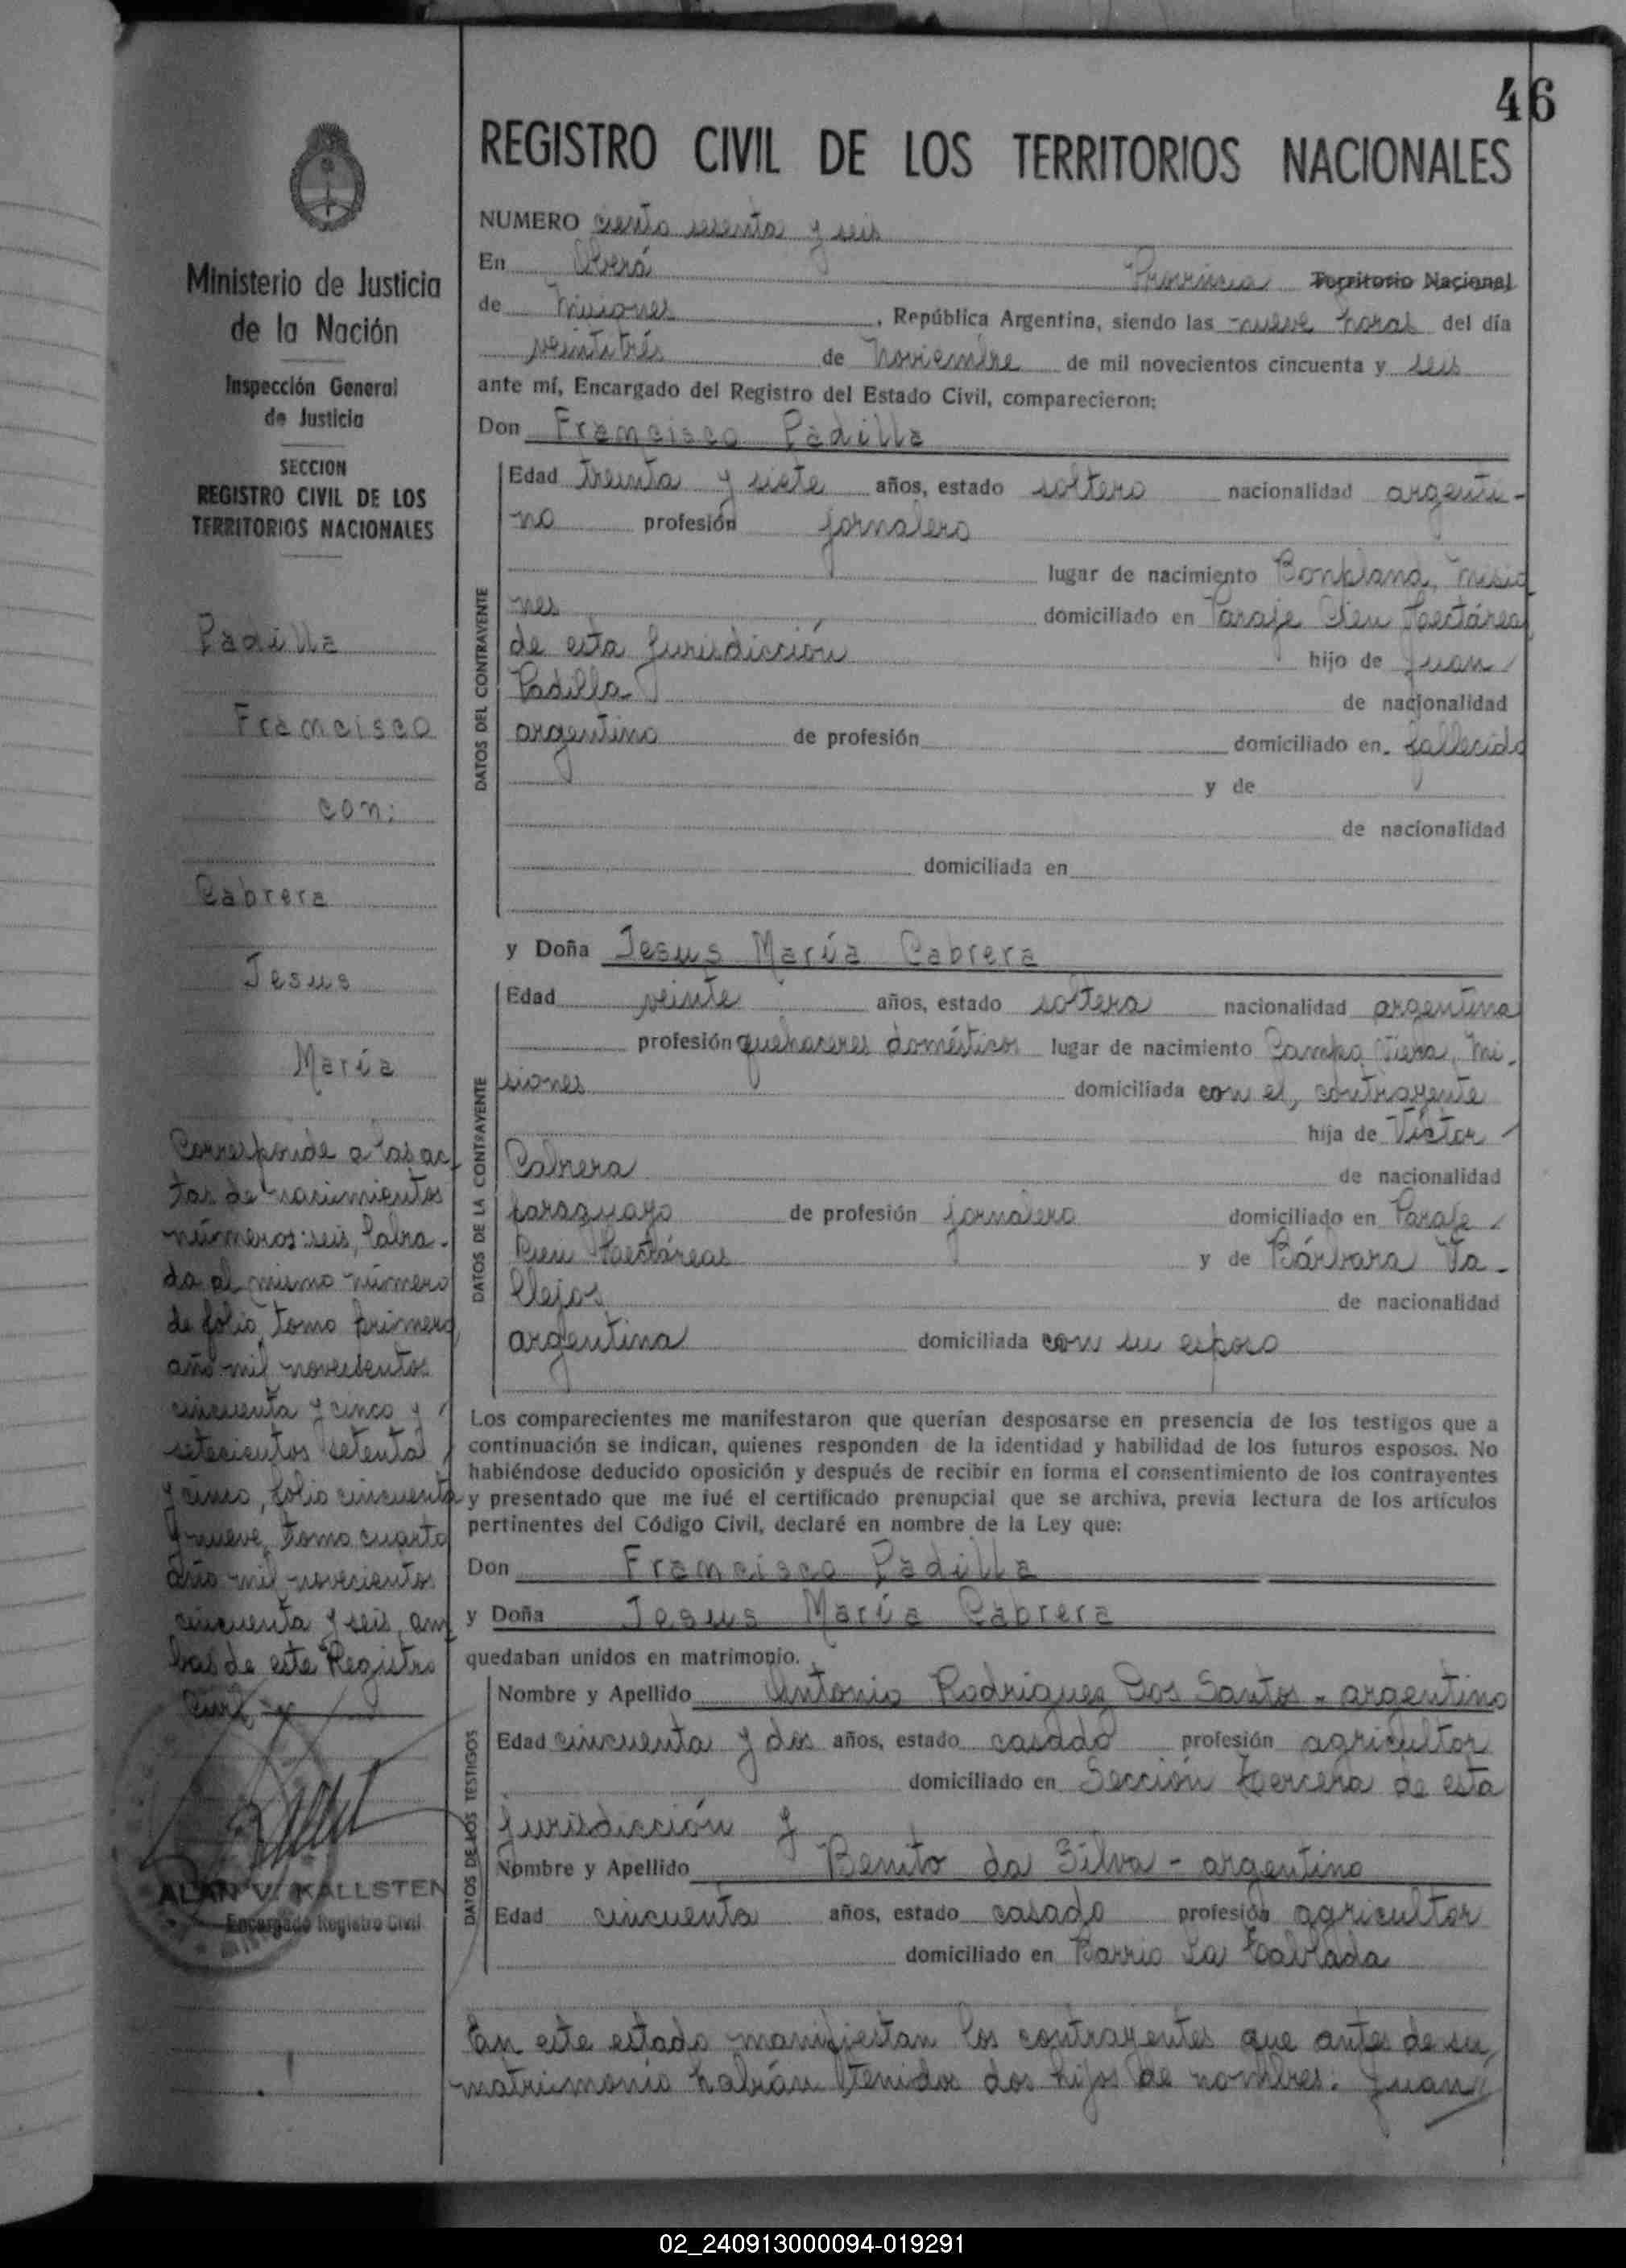 46
REGISTRO CIVIL DE LOS TERRITORIOS NACIONALES
Ministerio de Justicia
de la Nación
Inspección General
de Justicia
SECCION
REGISTRO CIVIL DE LOS
TERRITORIOS NACIONALES
Padilla
Francisco
con:
Cabrera
Jesus
María
Corresponde a las ac
tas de nacimientos
números: seis, labra-
da al mismo número
de folio, tomo primero,
año mil novecientos
cincuenta y cinco y
setecientos setenta
y cinco, folio cincuenta
y nueve, tomo cuarto
año mil novecientos
cincuenta y seis, am
bas de este Registro
Civil
ALAN V. KALLSTEN
Encargado Registro Civil
NUMERO ciento sesenta y seis
En Oberá Provincia Territorio Nacional
de Misiones, República Argentina, siendo las nueve horas del día
veintitrés de Noviembre de mil novecientos cincuenta y seis
ante mí, Encargado del Registro del Estado Civil, comparecieron:
Don Francisco Padilla
DATOS DEL CONTRAYENTE
Edad treinta y siete años, estado soltero nacionalidad argenti-
no profesión jornalero
lugar de nacimiento Bonpland, Misio
nes domiciliado en Paraje Cien Hectáreas
de esta Jurisdicción hijo de Juan
Padilla de nacionalidad
argentino de profesión domiciliado en fallecido
y de
de nacionalidad
domiciliada en
y Doña Jesus María Cabrera
DATOS DE LA CONTRAYENTE
Edad veinte años, estado soltera nacionalidad argentina
profesión quehaceres domésticos lugar de nacimiento Campo Viera, Mi-
siones domiciliada con el, contrayente
hija de Víctor
Cabrera de nacionalidad
paraguayo de profesión jornalero domiciliado en Paraje
Cien Hectáreas y de Bárbara Va-
llejos de nacionalidad
argentina domiciliada con su esposo
Los comparecientes me manifestaron que querían desposarse en presencia de los testigos que a
continuación se indican, quienes responden de la identidad y habilidad de los futuros esposos. No
habiéndose deducido oposición y después de recibir en forma el consentimiento de los contrayentes
y presentado que me fué el certificado prenupcial que se archiva, previa lectura de los artículos
pertinentes del Código Civil, declaré en nombre de la Ley que:
Don Francisco Padilla
y Doña Jesus María Cabrera
quedaban unidos en matrimonio.
DATOS DE LOS TESTIGOS
Nombre y Apellido Antonio Rodrigues Dos Santos - argentino
Edad cincuenta y dos años, estado casado profesión agricultor
domiciliado en Sección Tercera de esta
Jurisdicción y
Nombre y Apellido Benito da Silva - argentino
Edad cincuenta años, estado casado profesión agricultor
domiciliado en Barrio La Tablada
En este estado manifiestan los contrayentes que antes de su
matrimonio habían tenido dos hijos de nombres: Juan
02_240913000094-019291